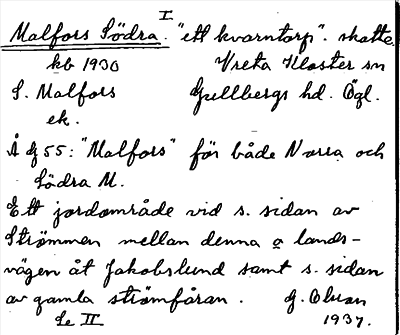 I
Malfors Södra. "ett kvarntorp". skatte.
kb 1930 Vreta Kloster sn
S. Malfors Gullbergs hd. Ögl.
ek.
Å G 55: "Malfors" för både Norra och
Södra M.
Ett jordområde vid s. sidan av
Strömmen mellan denna o lands-
vägen åt Jakobslund samt s. sidan
av gamla strömfåran. G. Olson
Se II 1937.